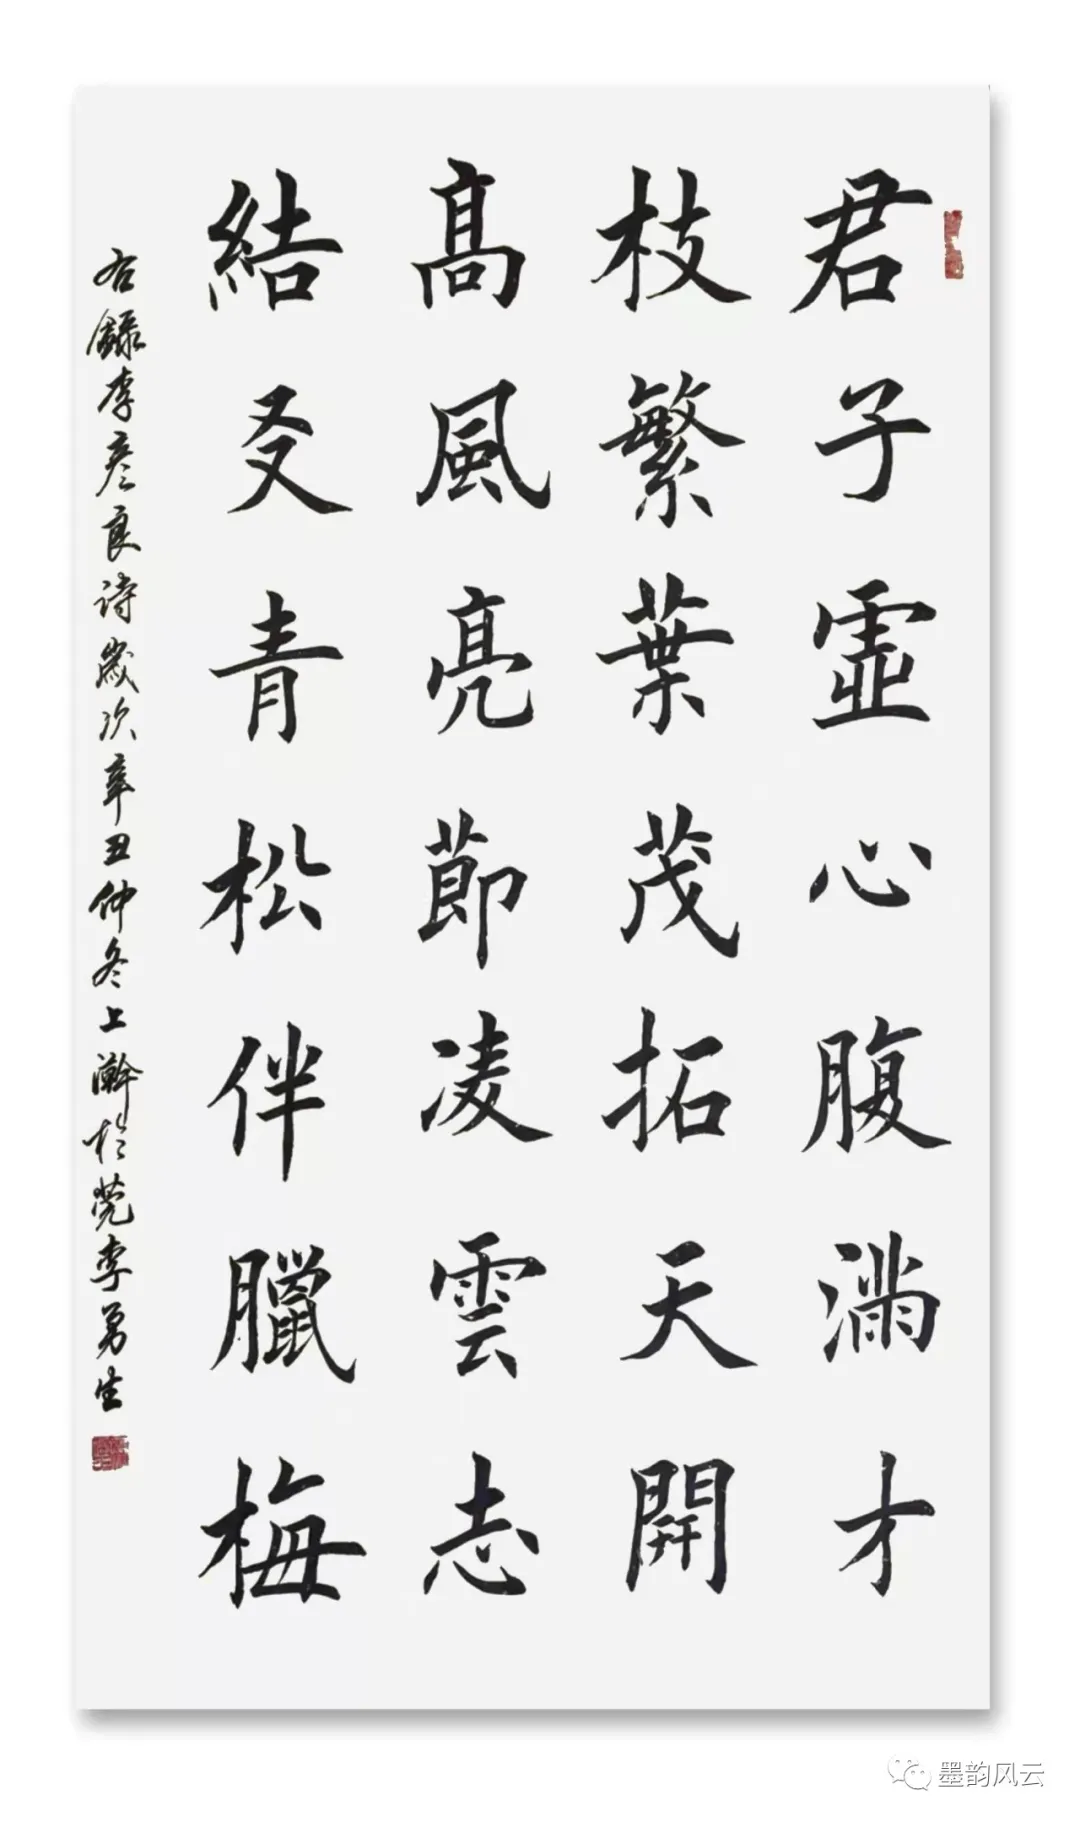 君子虛心腹滿才
枝繁葉茂拓天開
高風亮節凌雲志
結友青松伴臘梅
右録李彦良诗歲次辛丑仲冬上澣於莞李勇生
墨韵风云